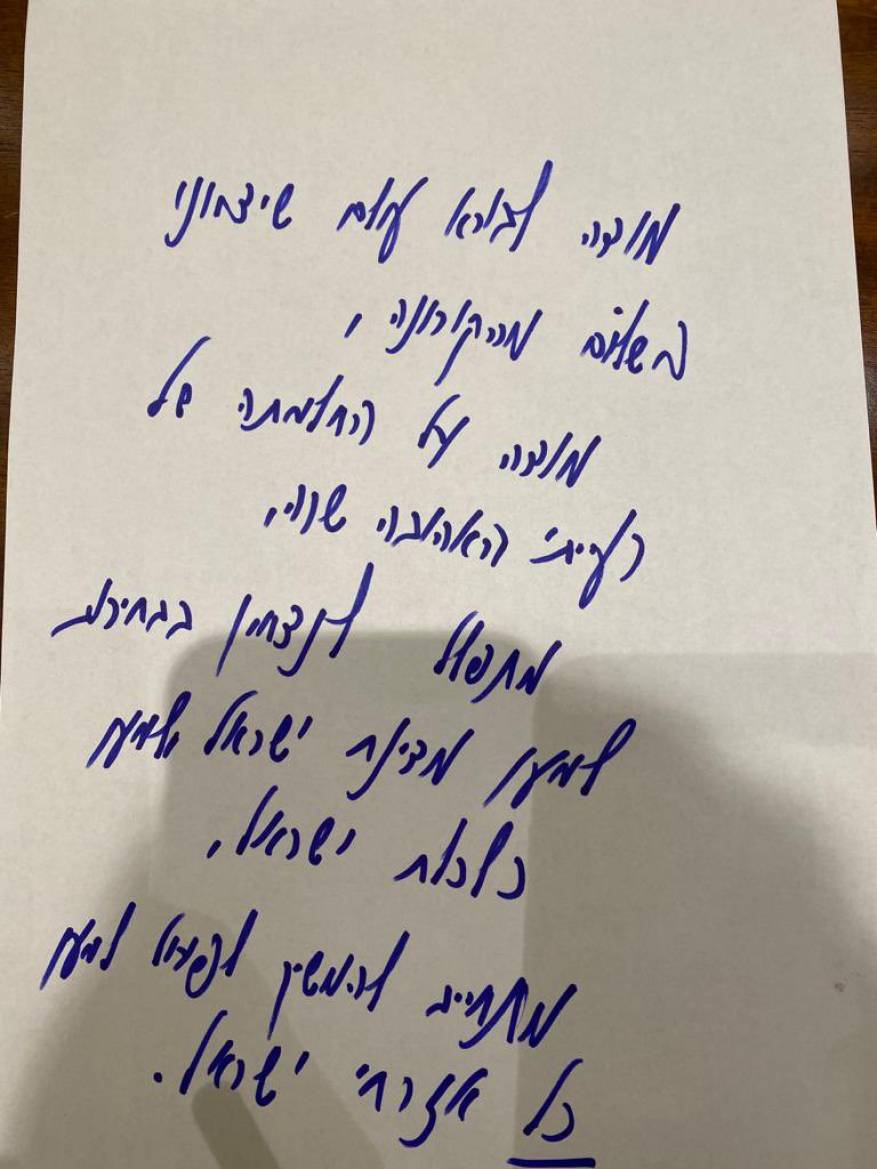 מודה לבורא עולם שיצאנו
בשלום מהקורונה,
מודה על החלמתה של
רעייתי האהובה שרוי,
מתפלל לנצחון בבחירות
למען מדינת ישראל ולמען
כלכלת ישראל,
מתחייב להמשיך לפעול למען
כל אזרחי ישראל.